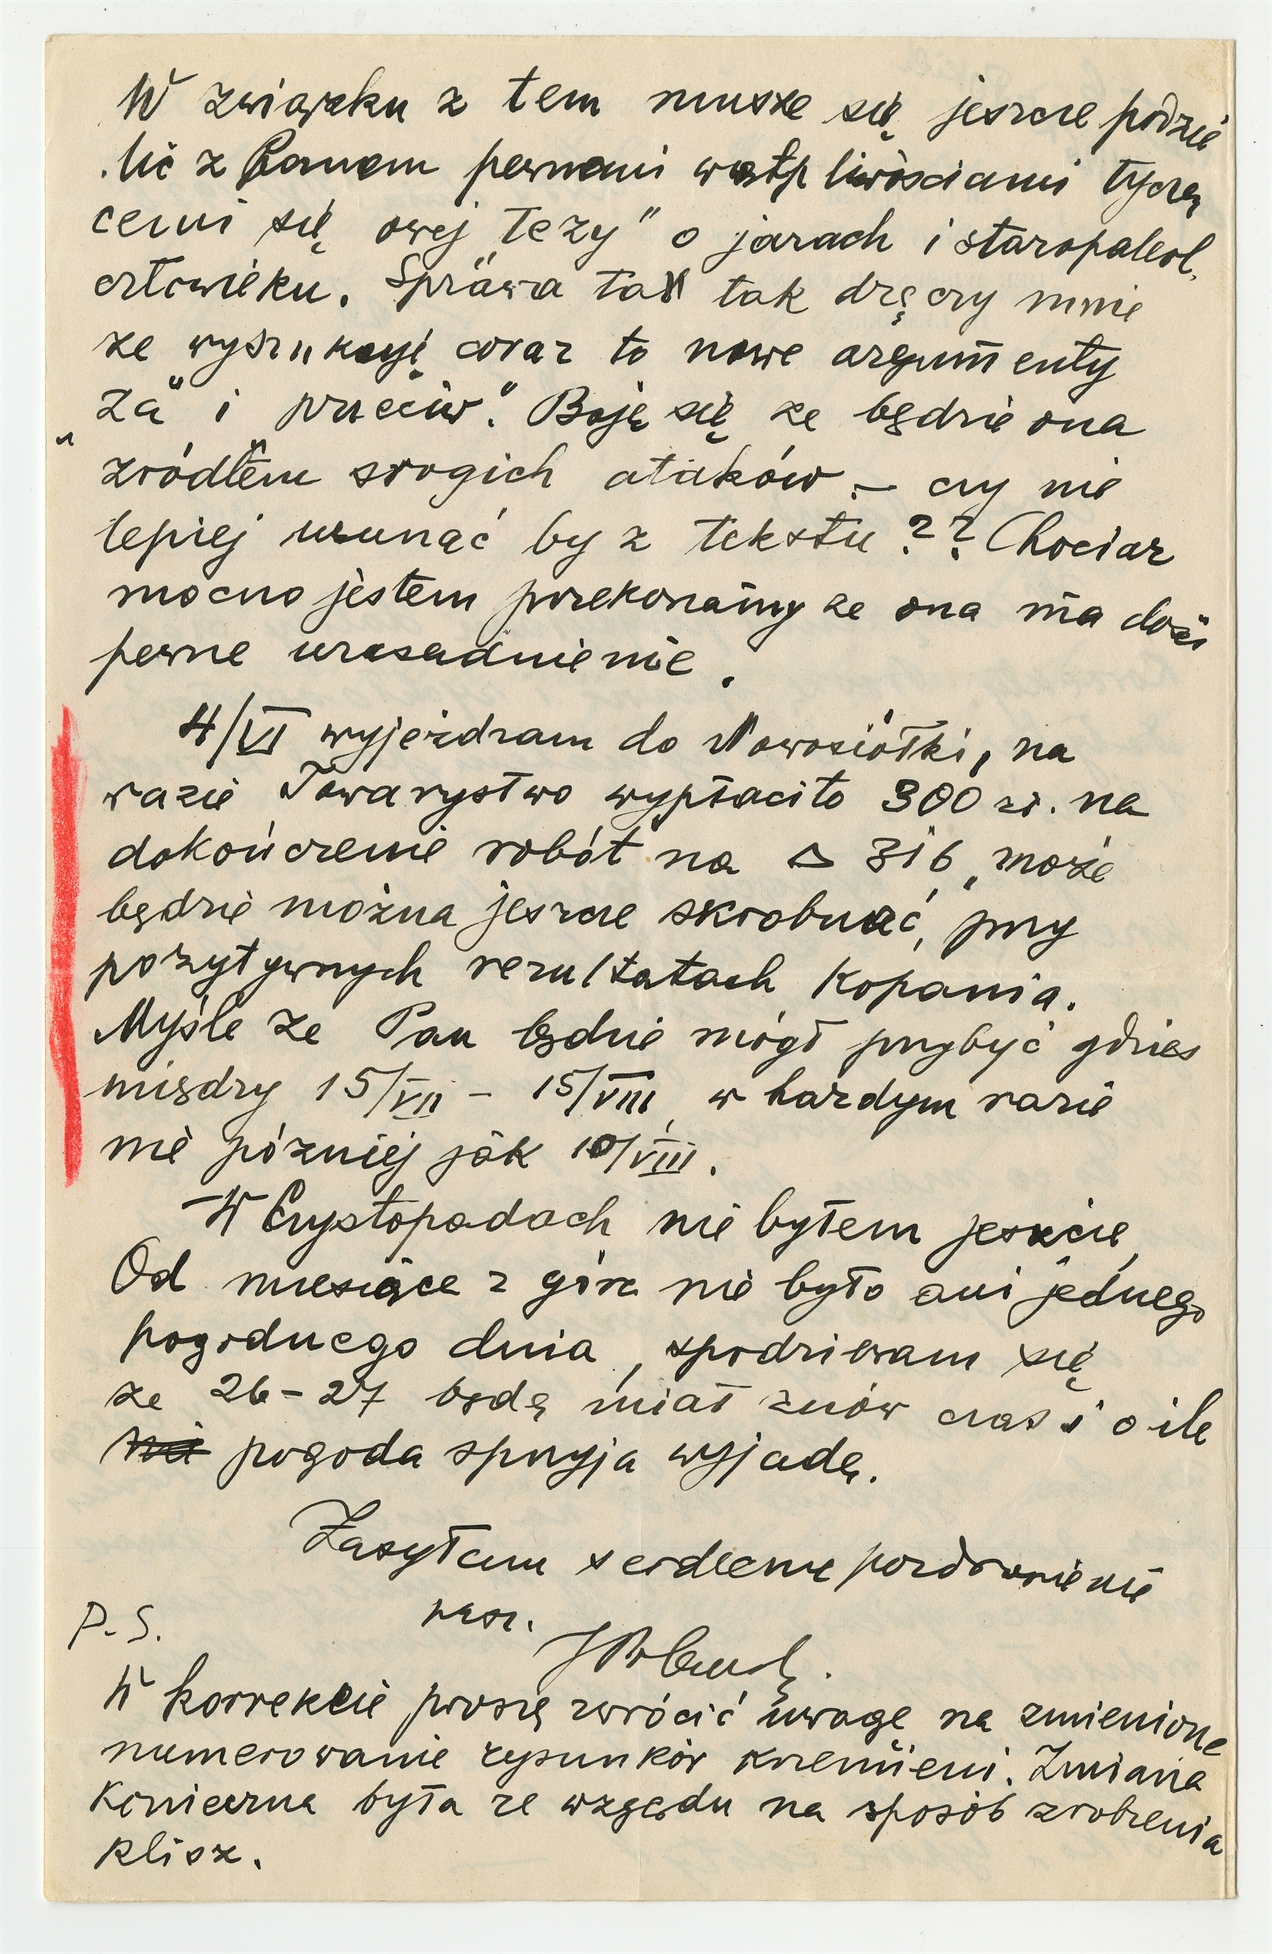 W związku z tem musze się jeszcze podzie
lić z Panem pewnemi wątpliwościami tyczą
cemi się owej tezy" o jarach i staropaleol.
człowieku. Sprawa ta tak dręczy mnie
ze wyszukuję coraz to nowe argumenty
„za" i przeciw". Boję się ze będzie ona
zródłem srogich ataków – czy nie
lepiej usunąć by z tekstu ?? Chociaz
mocno jestem przekonany ze ona ma dość
pewne uzasadnienie.
4/VI wyjeżdzam do Nowosiółki, na
razie Towarzystwo wypłaciło 300 zł. na
dokończenie robót na △ 316, może
będzie można jeszcze skrobnąć, przy
pozytywnych rezultatach kopania.
Myśle ze Pan będzie mógł przybyć gdzies
między 15/VII – 15/VIII, w kazdym razie
nie pózniej jak 10/VIII.
W Czystopadach nie byłem jeszcze,
Od miesiąca z górą nie było ani jednego
pogodnego dnia, spodziewam się
ze 26–27 będę miał znów czas i o ile
pogoda sprzyja wyjadę.
Zasyłam serdeczne pozdrowienie
P.S.
W korrekcie proszę zwrócić uwagę na zmienione
numerowanie rysunków krzemieni. Zmiana
Konieczna była ze względu na sposób zrobienia
klisz.